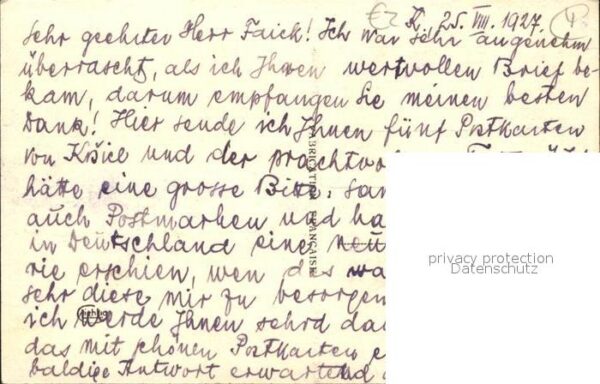 K. 25. VIII. 1927.
Sehr geehrter Herr Faick! Ich war sehr angenehm
überrascht, als ich Ihren wertvollen Brief be-
kam, darum empfangen Sie meinen besten
Dank! Hier sende ich Ihnen fünf Postkarten
von Košice und der prachtvo
hätte eine grosse Bitte: Sam
auch Postmarken und ha
in Deutschland eine neu
rie erschien, wen das wa
sehr diese mir zu besorgen
ich werde Ihnen sehrd da
das mit schönen Postkarten e
baldige Antwort erwartend
FABRICATION FRANÇAISE
privacy protection
Datenschutz